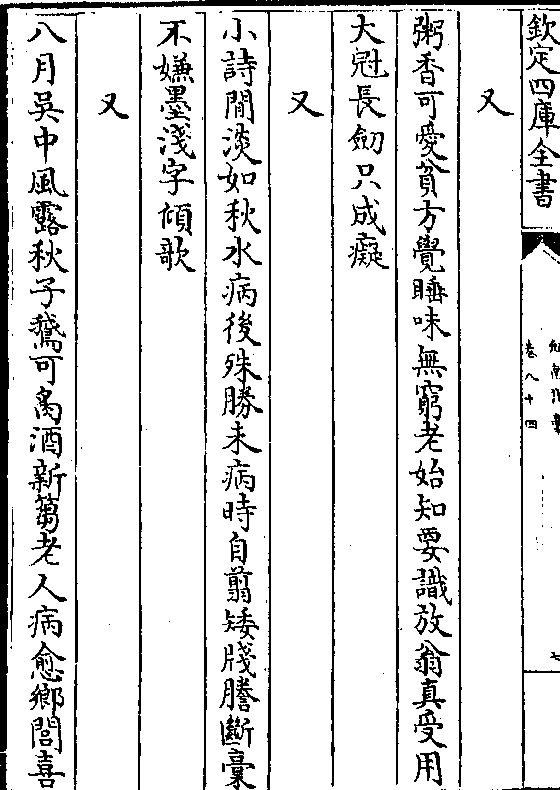 欽定四庫全書
卷八十四
又
粥香可愛貧方覺睡味無窮老始知要識放翁真受用
大冠長劒只成癡
又
小詩閒淡如秋水病後殊勝未病時自翦矮牋謄斷藁
不嫌墨淺字傾欹
又
八月吳中風露秋子鵝可禼酒新篘老人病愈鄉閭喜